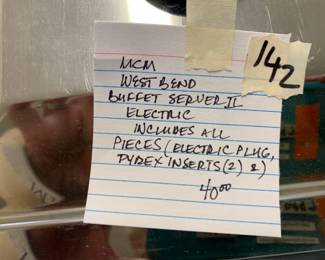 142
MCM
WEST BEND
BUFFET SERVER II
ELECTRIC
INCLUDES ALL
PIECES (ELECTRIC PLUG,
PYREX INSERTS (2) &)
40⁰⁰